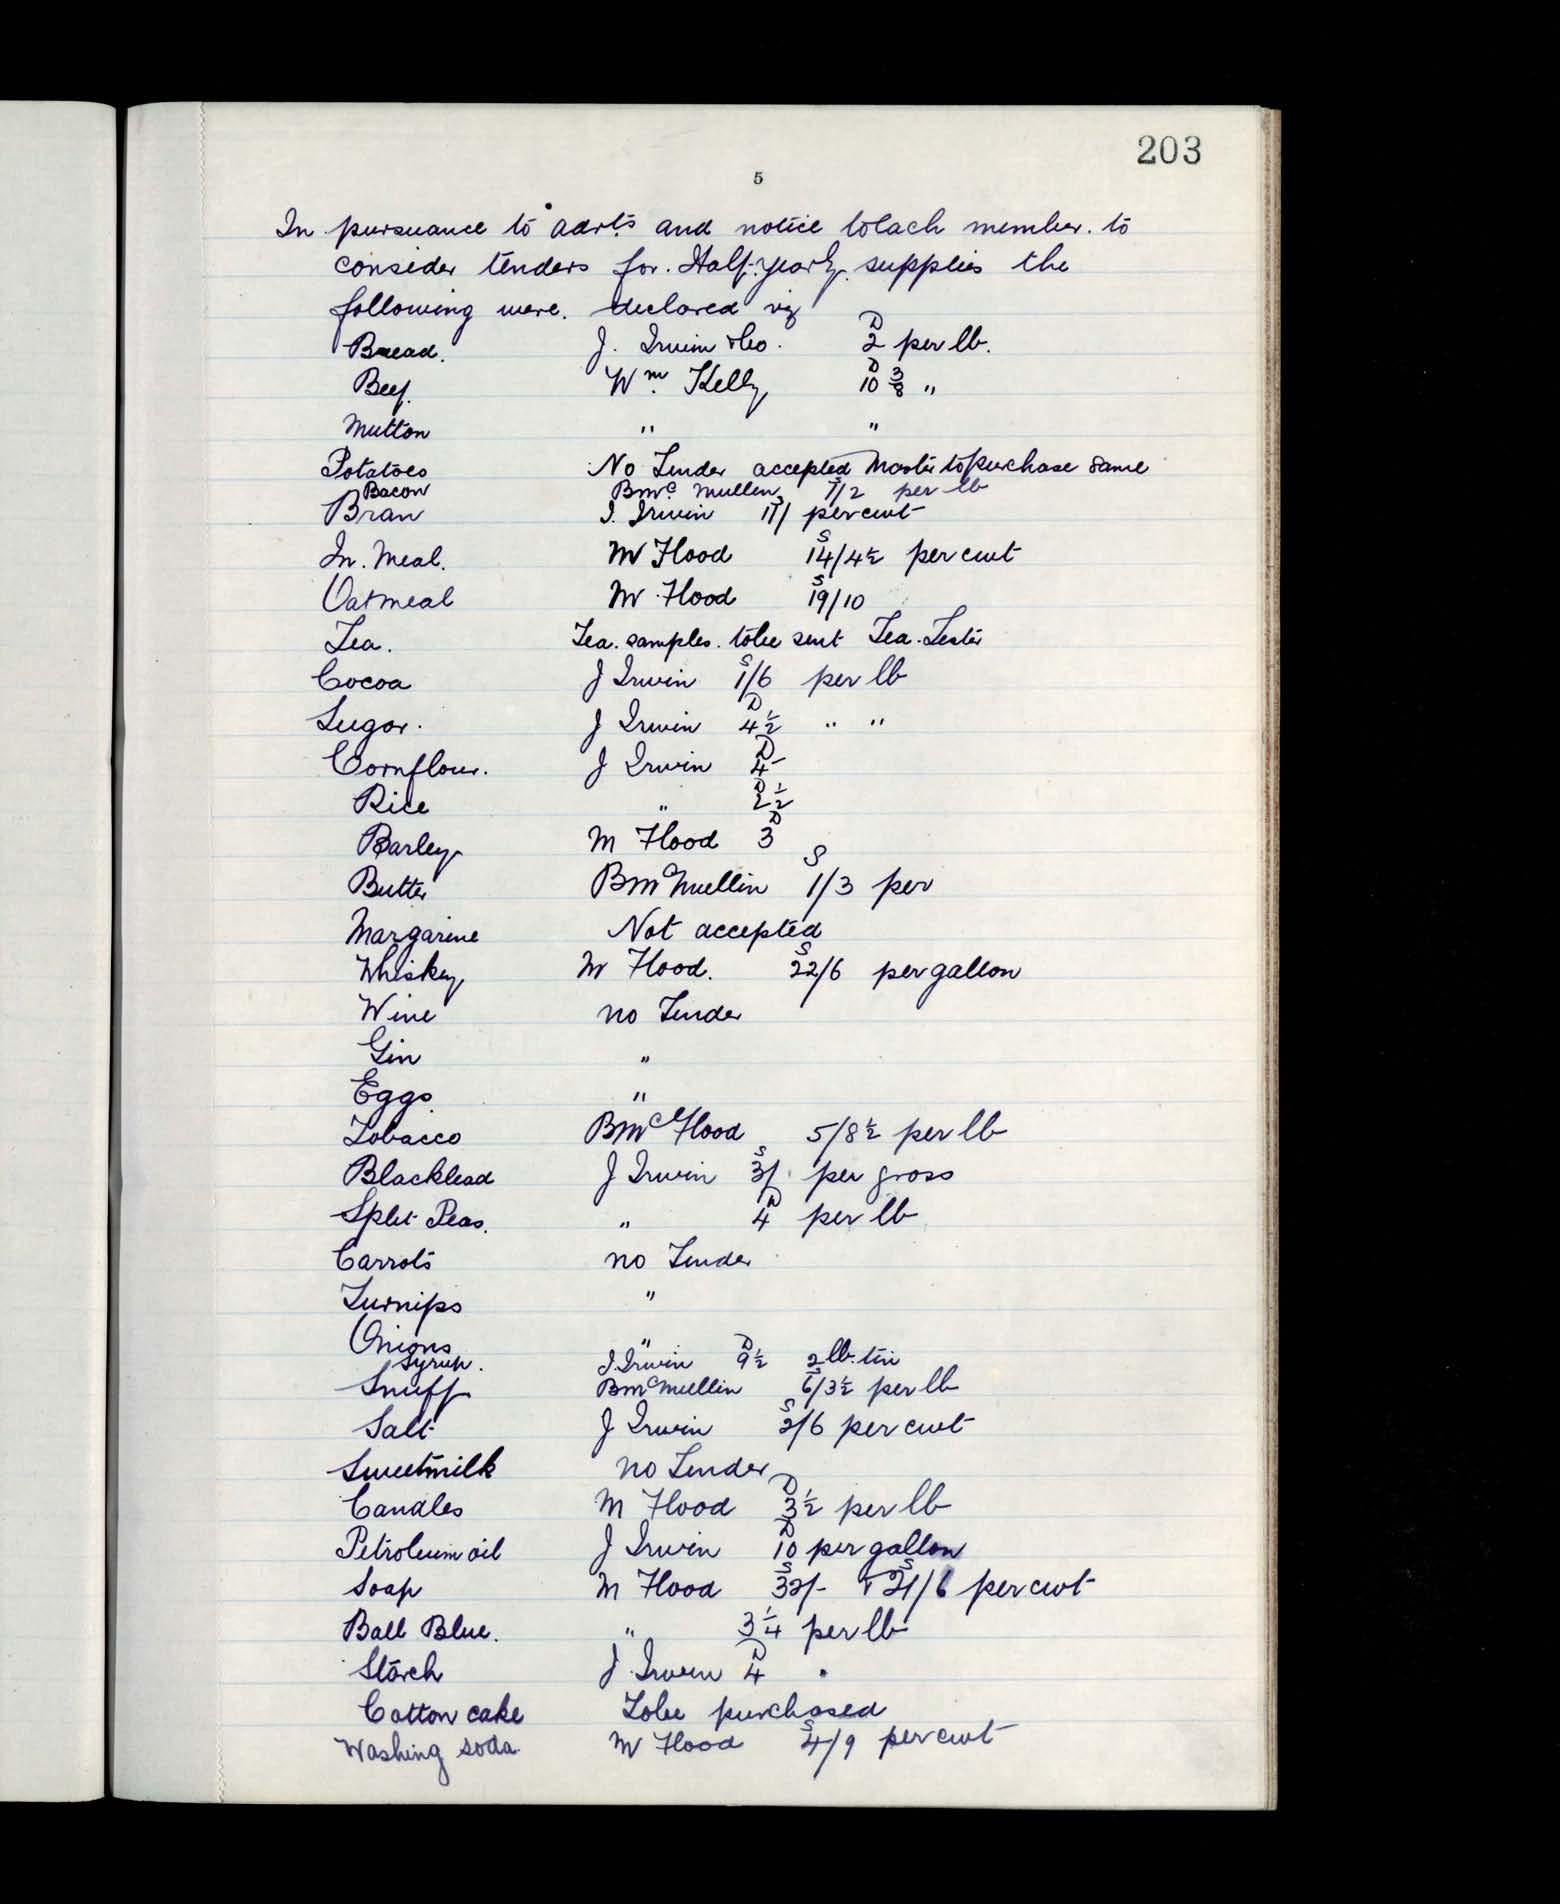 203
5
In pursuance to advts and notice to each member. to
consider tenders for. Half-yearly. supplies the
following were. declared viz
Bread. J. Irwin & Co. 2D per lb.
Beef. Wm Kelly 10 3/8 D "
Mutton " "
Potatoes No Tender accepted Master to purchase same
Bacon B McMullen 1/2 per lb
Bran J. Irwin 11/ per cwt
In. Meal. M Flood 14/4½ S per cwt
Oatmeal M Flood 19/10 S
Tea. Tea. samples. to be sent Tea. Tester
Cocoa J Irwin 1/6 S per lb
Sugar. J Irwin 4½ D " "
Cornflour. J Irwin 4 D
Rice " 2½ D
Barley M Flood 3 D
Butter B McMullin 1/3 S per
Margarine Not accepted
Whiskey M Flood. 22/6 S per gallon
Wine no Tender
Gin "
Eggs "
Tobacco B Mc Flood 5/8½ per lb
Blacklead J Irwin 3/ S per gross
Split Peas. " 4 D per lb
Carrots no Tender
Turnips "
Onions "
Syrup. J. Irwin 9½ D 2 lb. tin
Snuff B McMullin 6/3½ S per lb
Salt J Irwin 2/6 S per cwt
Sweetmilk no Tender
Candles M Flood 3½ D per lb
Petroleum oil J Irwin 10 D per gallon
Soap M Flood 32/- S & 21/6 S per cwt
Ball Blue. " 3¼ per lb
Starch J Irwin 4 D "
Cotton cake To be purchased
Washing soda M Flood 4/9 S per cwt